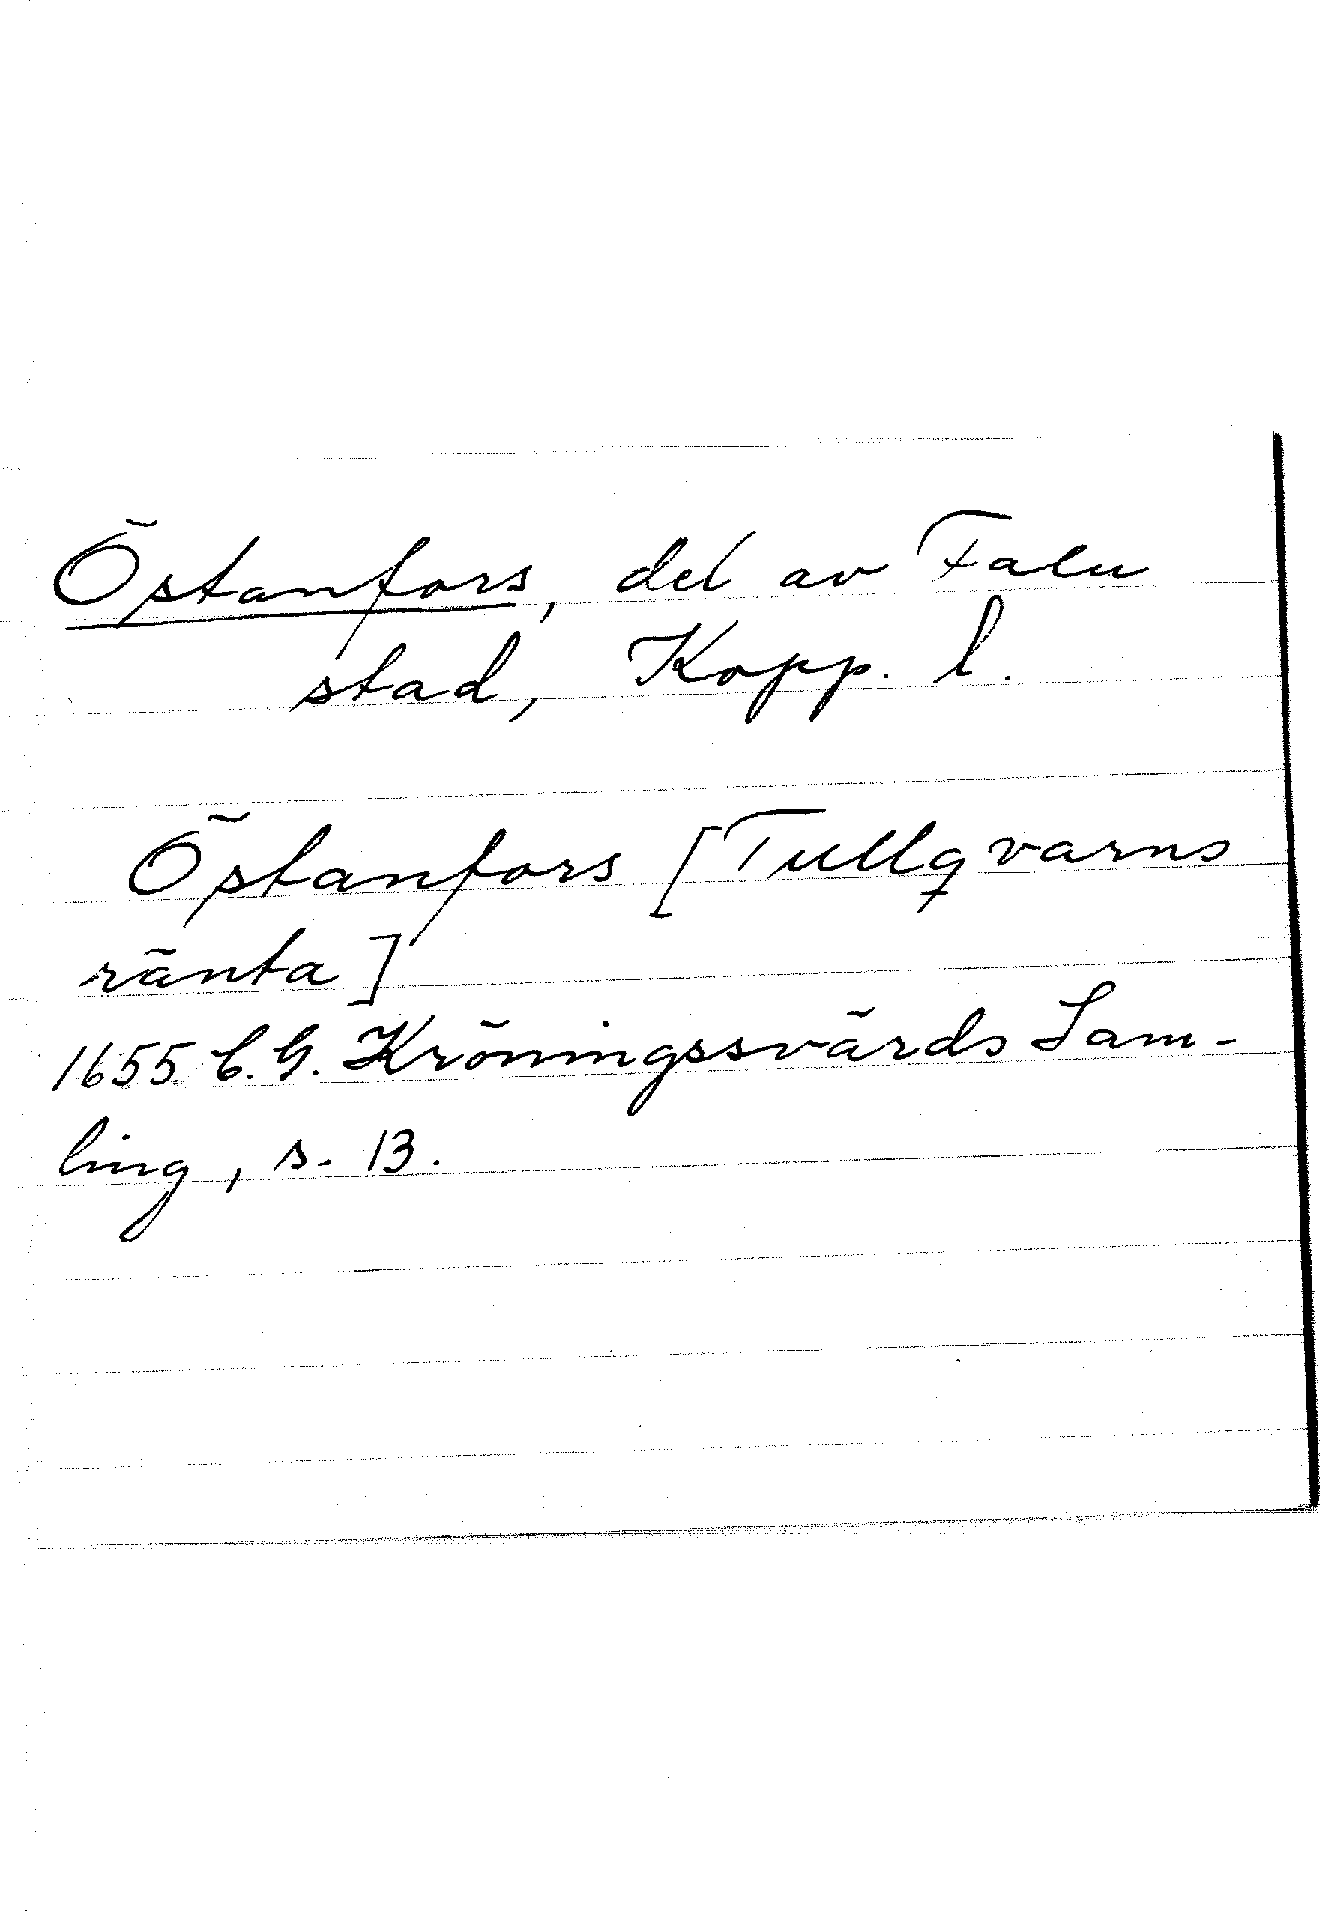 Östanfors, del av Falu
stad, Kopp. l.
Östanfors [Tullqvarns
ränta]
1655 C. G. Kröningssvärds Sam-
ling, s. 13.